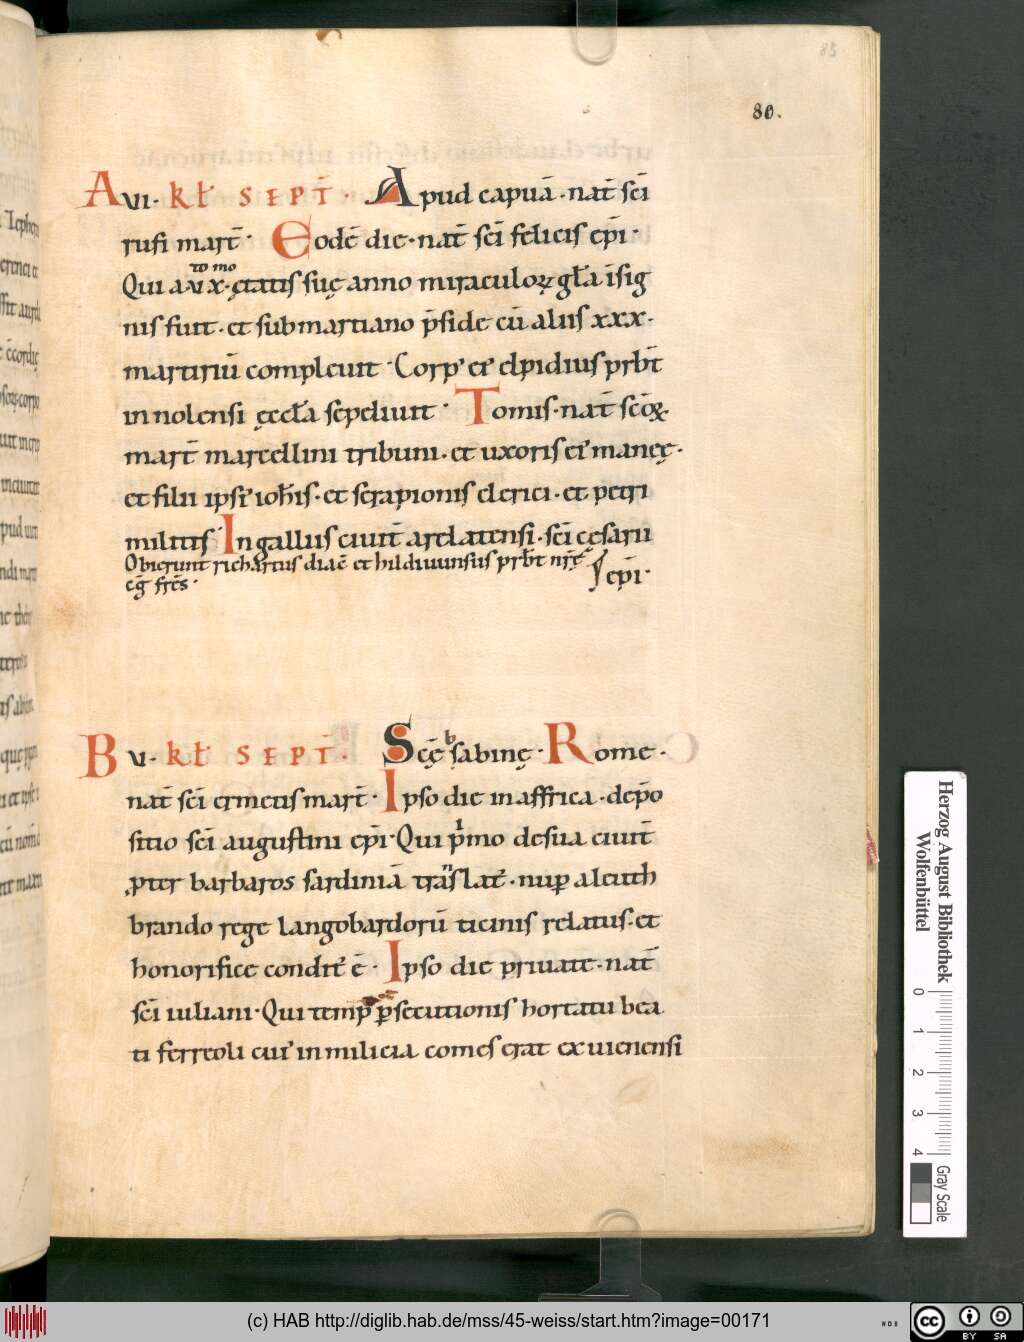 83
80.
A VI· kł SEPT̄· Apud capuā·nat̄ sc̄i
rufi mart̄· Eodē die·nat̄ sc̄i felicis ep̄i·
to mo
Qui a·v x·ętatis suę anno miraculoꝝ gła īsig
nis fuit·et sub martiano p̄side cū aliis xxx·
martiriū compleuit·Corp᾽ ei᾽ elpidius prb̄t
in nolensi ęccła sepeliuit· Tomis·nat̄ sc̄oꝝ
mart̄ marcellini tribuni·et uxoris ei᾽ maneę·
et filii ipsi᾽ ioħis·et serapionis clerici·et petri
militis·In galliis ciuit̄ arelatensi·sc̄i cęsarii
Obierunt richartus diac̄ et hildiuunsus prb̄t nr̄ę
cg̃ fr̄es· ep̄i·
B V· kł SEPT̄· Sc̄ę sabinę·Rome·
nat̄ sc̄i ermetis mart̄·Ipso die in affrica·dep̄o
sitio sc̄i augustini ep̄i·Qui p̄mo de sua ciuit̄
ꝓpter barbaros sardiniā trãslat᾽·nuꝑ a leuth
brando rege langobardorū ticinis relatus·et
honorifice condit᾽ ē·Ipso die priuate·nat̄
sc̄i iuliani·Qui temp̄ ꝑsecutionis hortatu bea
ti ferreoli cui᾽ in milicia comes erat ex uienensi
Herzog August Bibliothek
Wolfenbüttel
0 1 2 3 4
Gray Scale
(c) HAB http://diglib.hab.de/mss/45-weiss/start.htm?image=00171
cc BY SA